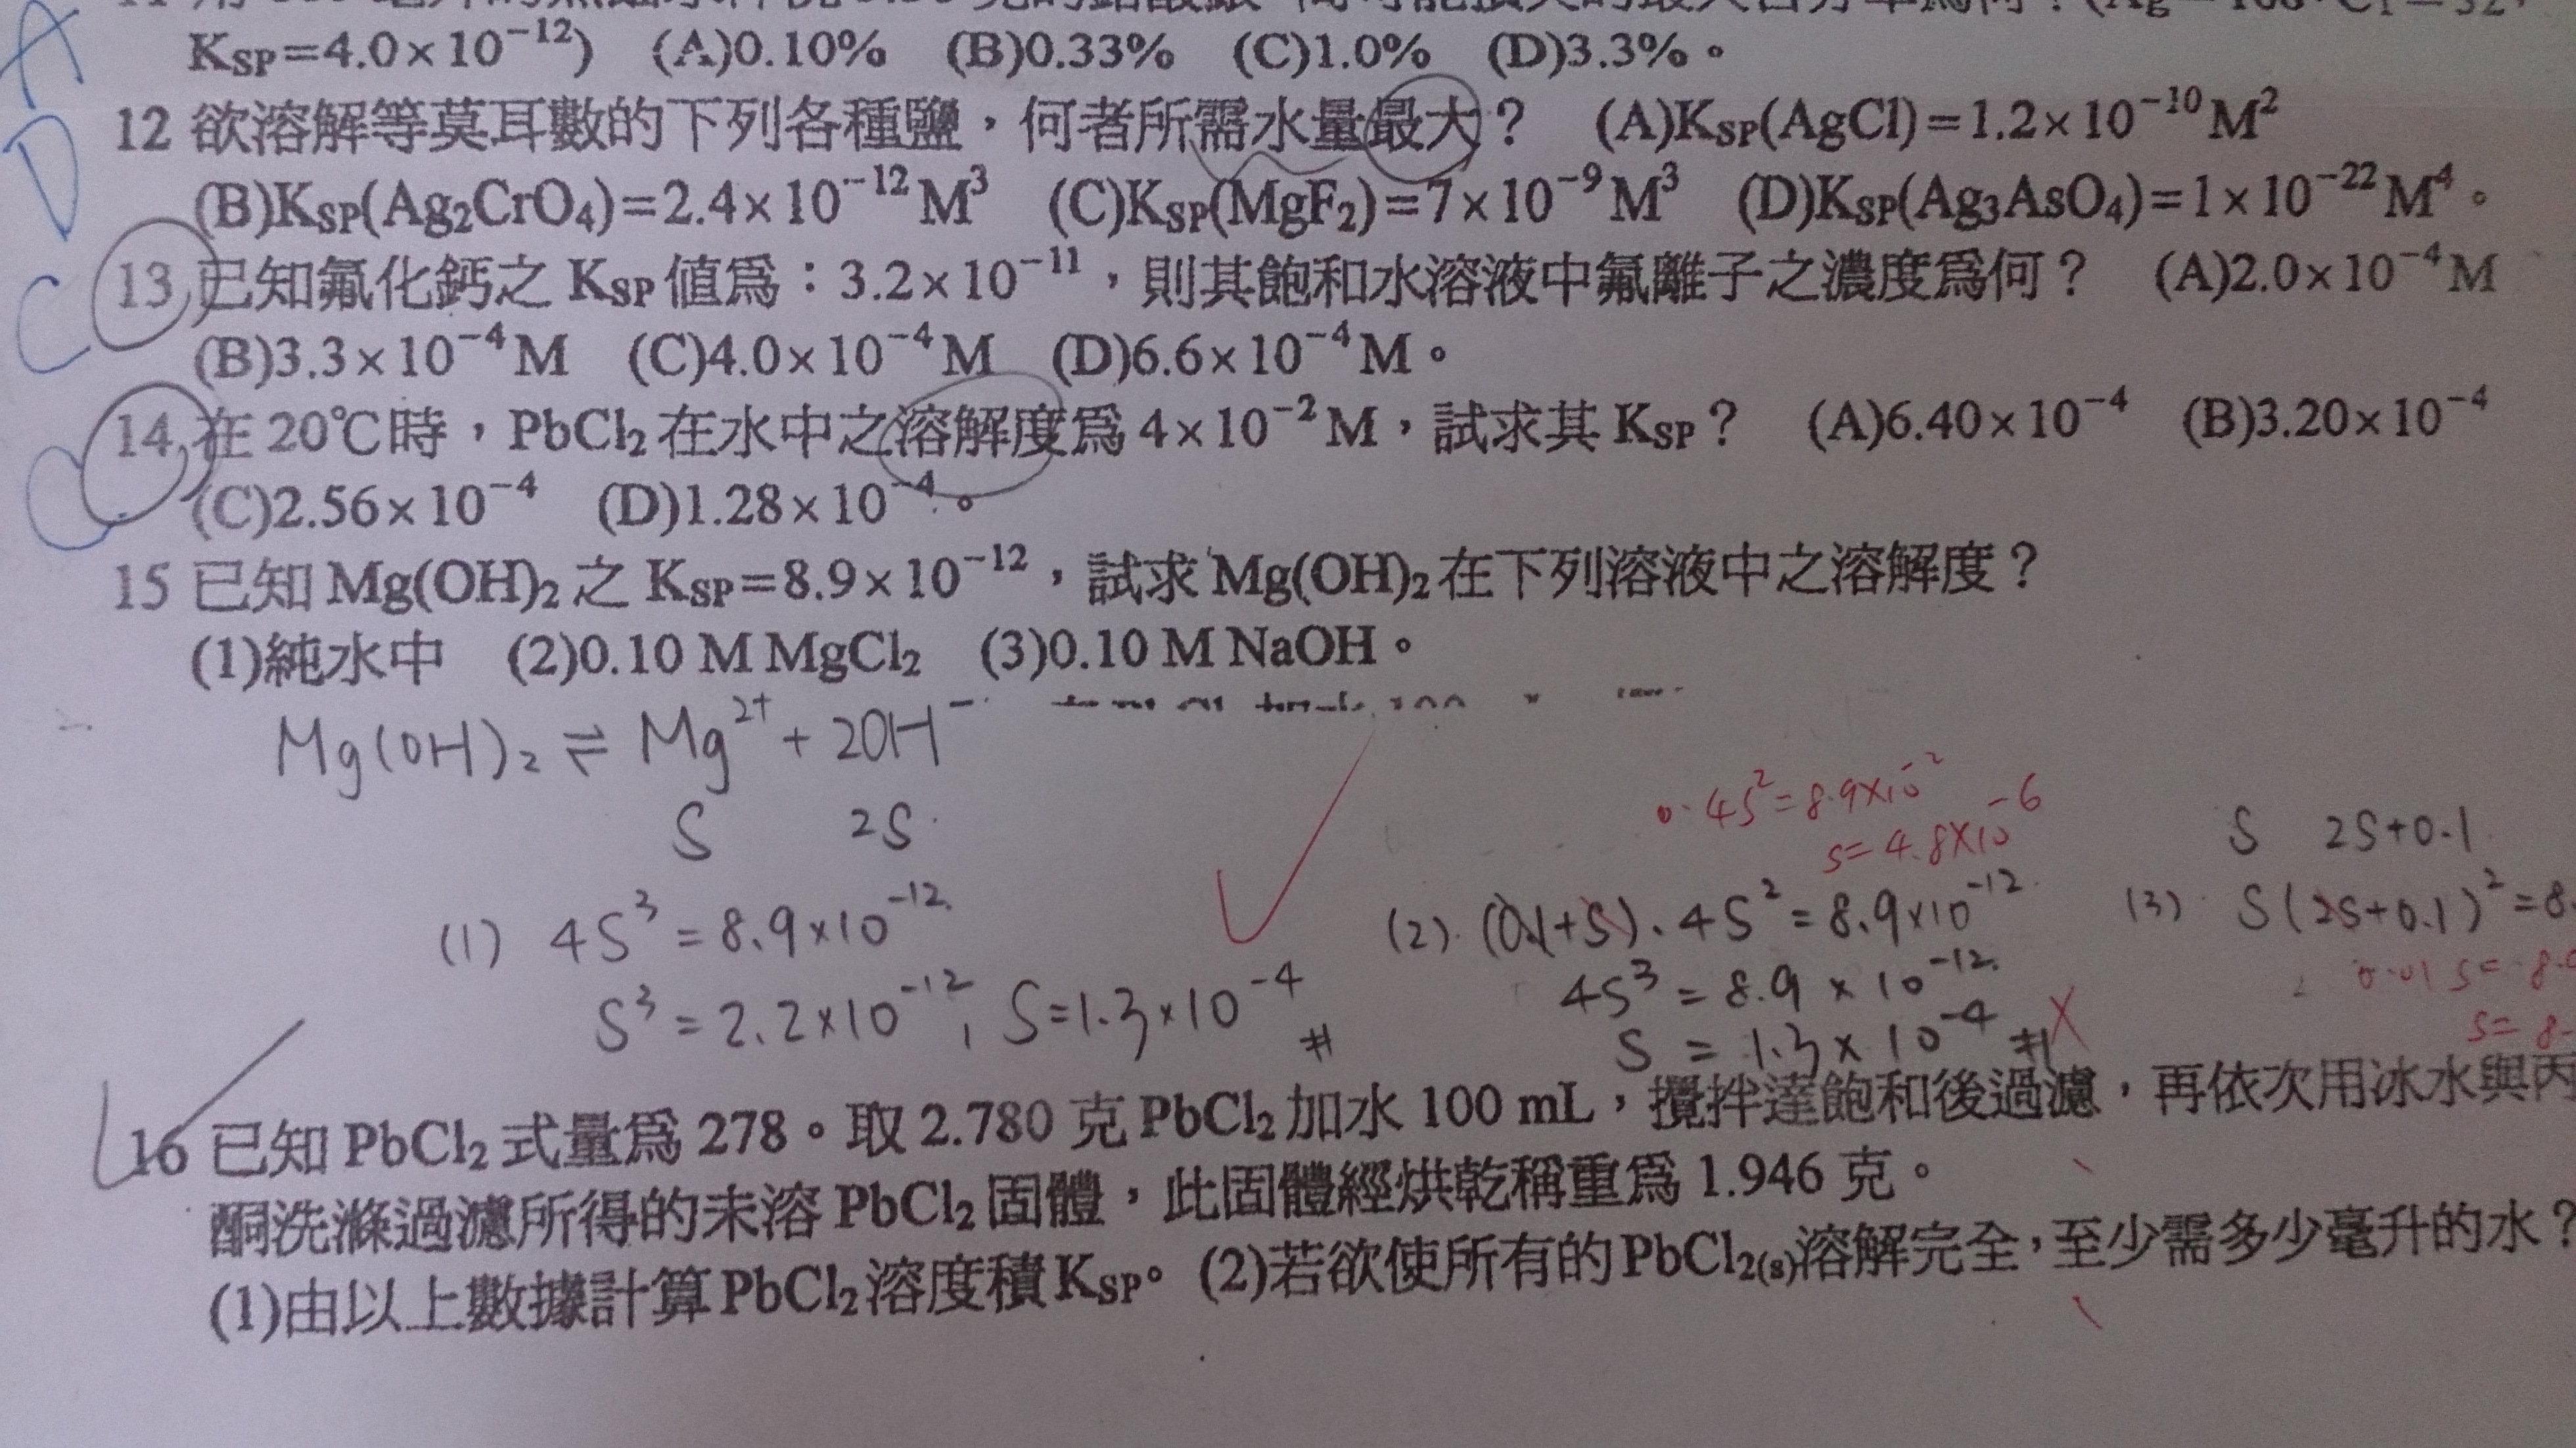 K_SP=4.0×10⁻¹²) (A)0.10% (B)0.33% (C)1.0% (D)3.3%。
A
12 欲溶解等莫耳數的下列各種鹽，何者所需水量最大？ (A)K_SP(AgCl)=1.2×10⁻¹⁰M²
D
(B)K_SP(Ag₂CrO₄)=2.4×10⁻¹²M³ (C)K_SP(MgF₂)=7×10⁻⁹M³ (D)K_SP(Ag₃AsO₄)=1×10⁻²²M⁴。
C
13 已知氟化鈣之 K_SP 值爲：3.2×10⁻¹¹，則其飽和水溶液中氟離子之濃度爲何？ (A)2.0×10⁻⁴M
(B)3.3×10⁻⁴M (C)4.0×10⁻⁴M (D)6.6×10⁻⁴M。
C
14 在 20℃時，PbCl₂在水中之溶解度爲 4×10⁻²M，試求其 K_SP？ (A)6.40×10⁻⁴ (B)3.20×10⁻⁴
(C)2.56×10⁻⁴ (D)1.28×10⁻⁴。
15 已知 Mg(OH)₂之 K_SP=8.9×10⁻¹²，試求 Mg(OH)₂在下列溶液中之溶解度？
(1)純水中 (2)0.10 M MgCl₂ (3)0.10 M NaOH。
Mg(OH)₂ ⇌ Mg²⁺ + 2OH⁻
S 2S
(1) 4S³ = 8.9×10⁻¹²
S³ = 2.2×10⁻¹², S=1.3×10⁻⁴ #
0.4S²=8.9×10⁻²
S=4.8×10⁻⁶
(2). (0.1+S).4S²=8.9×10⁻¹²
4S³ = 8.9×10⁻¹²
S = 1.3×10⁻⁴ #
S 2S+0.1
(3) S(2S+0.1)²=8.
0.01S=8.
S=8.
16 已知 PbCl₂式量爲 278。取 2.780 克 PbCl₂加水 100 mL，攪拌達飽和後過濾，再依次用冰水與丙
酮洗滌過濾所得的未溶 PbCl₂固體，此固體經烘乾稱重爲 1.946 克。
(1)由以上數據計算PbCl₂溶度積K_SP。 (2)若欲使所有的PbCl₂₍ₛ₎溶解完全，至少需多少毫升的水？